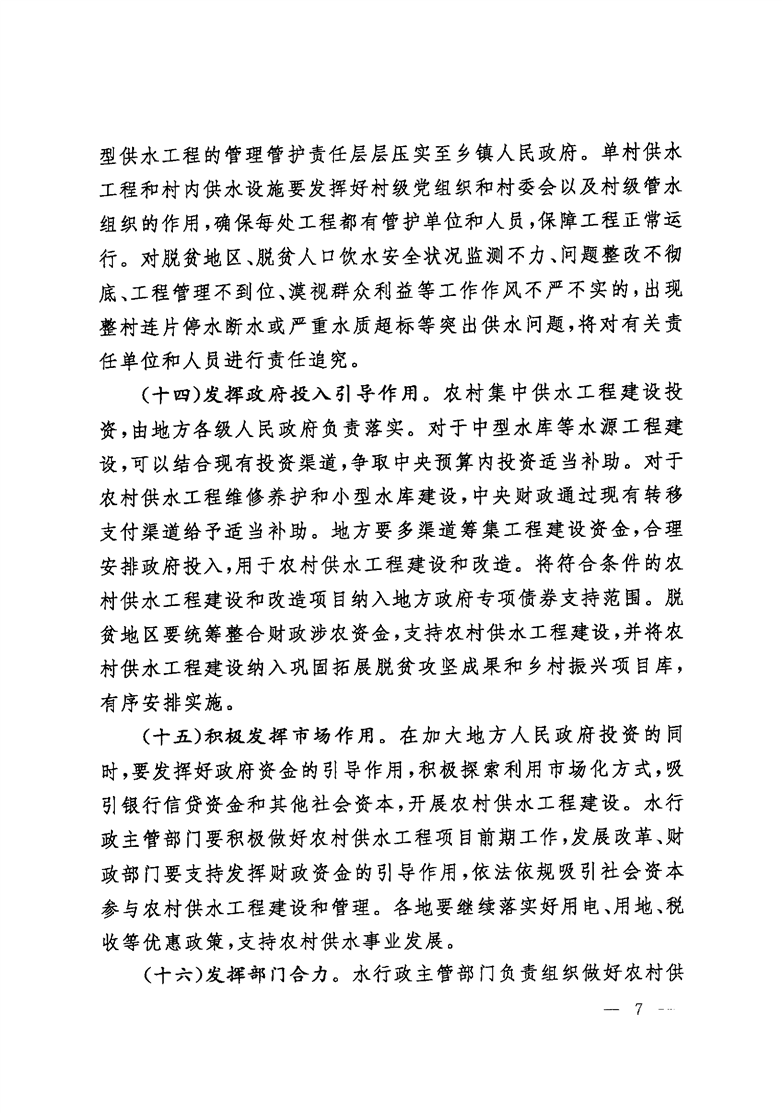 型供水工程的管理管护责任层层压实至乡镇人民政府。单村供水
工程和村内供水设施要发挥好村级党组织和村委会以及村级管水
组织的作用,确保每处工程都有管护单位和人员,保障工程正常运
行。对脱贫地区、脱贫人口饮水安全状况监测不力、问题整改不彻
底、工程管理不到位、漠视群众利益等工作作风不严不实的,出现
整村连片停水断水或严重水质超标等突出供水问题,将对有关责
任单位和人员进行责任追究。
(十四)发挥政府投入引导作用。农村集中供水工程建设投
资,由地方各级人民政府负责落实。对于中型水库等水源工程建
设,可以结合现有投资渠道,争取中央预算内投资适当补助。对于
农村供水工程维修养护和小型水库建设,中央财政通过现有转移
支付渠道给予适当补助。地方要多渠道筹集工程建设资金,合理
安排政府投入,用于农村供水工程建设和改造。将符合条件的农
村供水工程建设和改造项目纳入地方政府专项债券支持范围。脱
贫地区要统筹整合财政涉农资金,支持农村供水工程建设,并将农
村供水工程建设纳入巩固拓展脱贫攻坚成果和乡村振兴项目库,
有序安排实施。
(十五)积极发挥市场作用。在加大地方人民政府投资的同
时,要发挥好政府资金的引导作用,积极探索利用市场化方式,吸
引银行信贷资金和其他社会资本,开展农村供水工程建设。水行
政主管部门要积极做好农村供水工程项目前期工作,发展改革、财
政部门要支持发挥财政资金的引导作用,依法依规吸引社会资本
参与农村供水工程建设和管理。各地要继续落实好用电、用地、税
收等优惠政策,支持农村供水事业发展。
(十六)发挥部门合力。水行政主管部门负责组织做好农村供
— 7 —